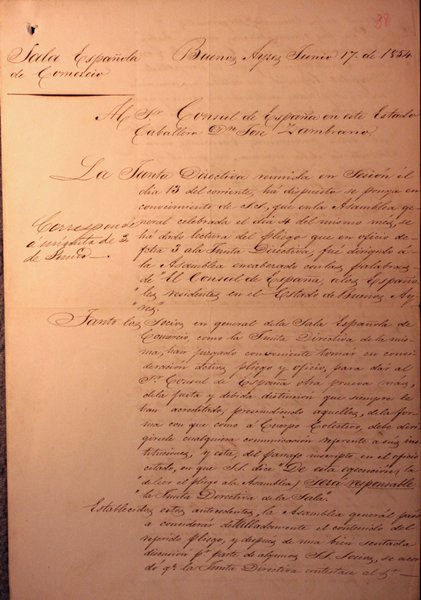 38
Sala Española
de Comercio
Buenos Ayres Junio 17 de 1854
Al Sr Consul de España en este Estado
Caballero Dn Jose Zambrano
La Junta Directiva reunida en Sesión el
dia 13 del corriente, ha dispuesto se ponga en
conocimiento de S.S. que en la Asamblea ge-
neral celebrada el dia 4 del mismo mes, se
ha dado lectura del pliego que en oficio de
fha 3 a la Junta Directiva, fué dirigido á
la Asamblea encabezado con las palabras
de "El Consul de España, a los Españo-
"les residentes en el Estado de Buenos Ay-
"res"
Corresponde
de Junio
Tanto los Socios en general de la Sala Española de
Comercio, como la Junta Directiva de la mis-
ma, han juzgado conveniente tomar en consi-
deración dichos pliego y oficio, para dar al
Sr Consul de España otra prueba mas,
de la justa y debida distincion que siempre le
han acreditado, prescindiendo aquellos, de la for-
ma con que como a Cuerpo Colectivo, debe diri-
girsele cualquiera comunicación referente a sus ins-
tituciones, y esta, del parrafo inscripto en el oficio
citado, en que S.S. dice "De esta ejecucion, (la
"de leer el pliego a la Asamblea) Será responsable
"la Junta Directiva de la Sala".
Establecidos estos antecedentes, la Asamblea general pasó
a considerar detalladamente el contenido del
referido pliego, y despues de una bien sentada
discusion pr parte de algunos S.S. Socios, se acor-
dó qe la Junta Directiva contestase al Sr